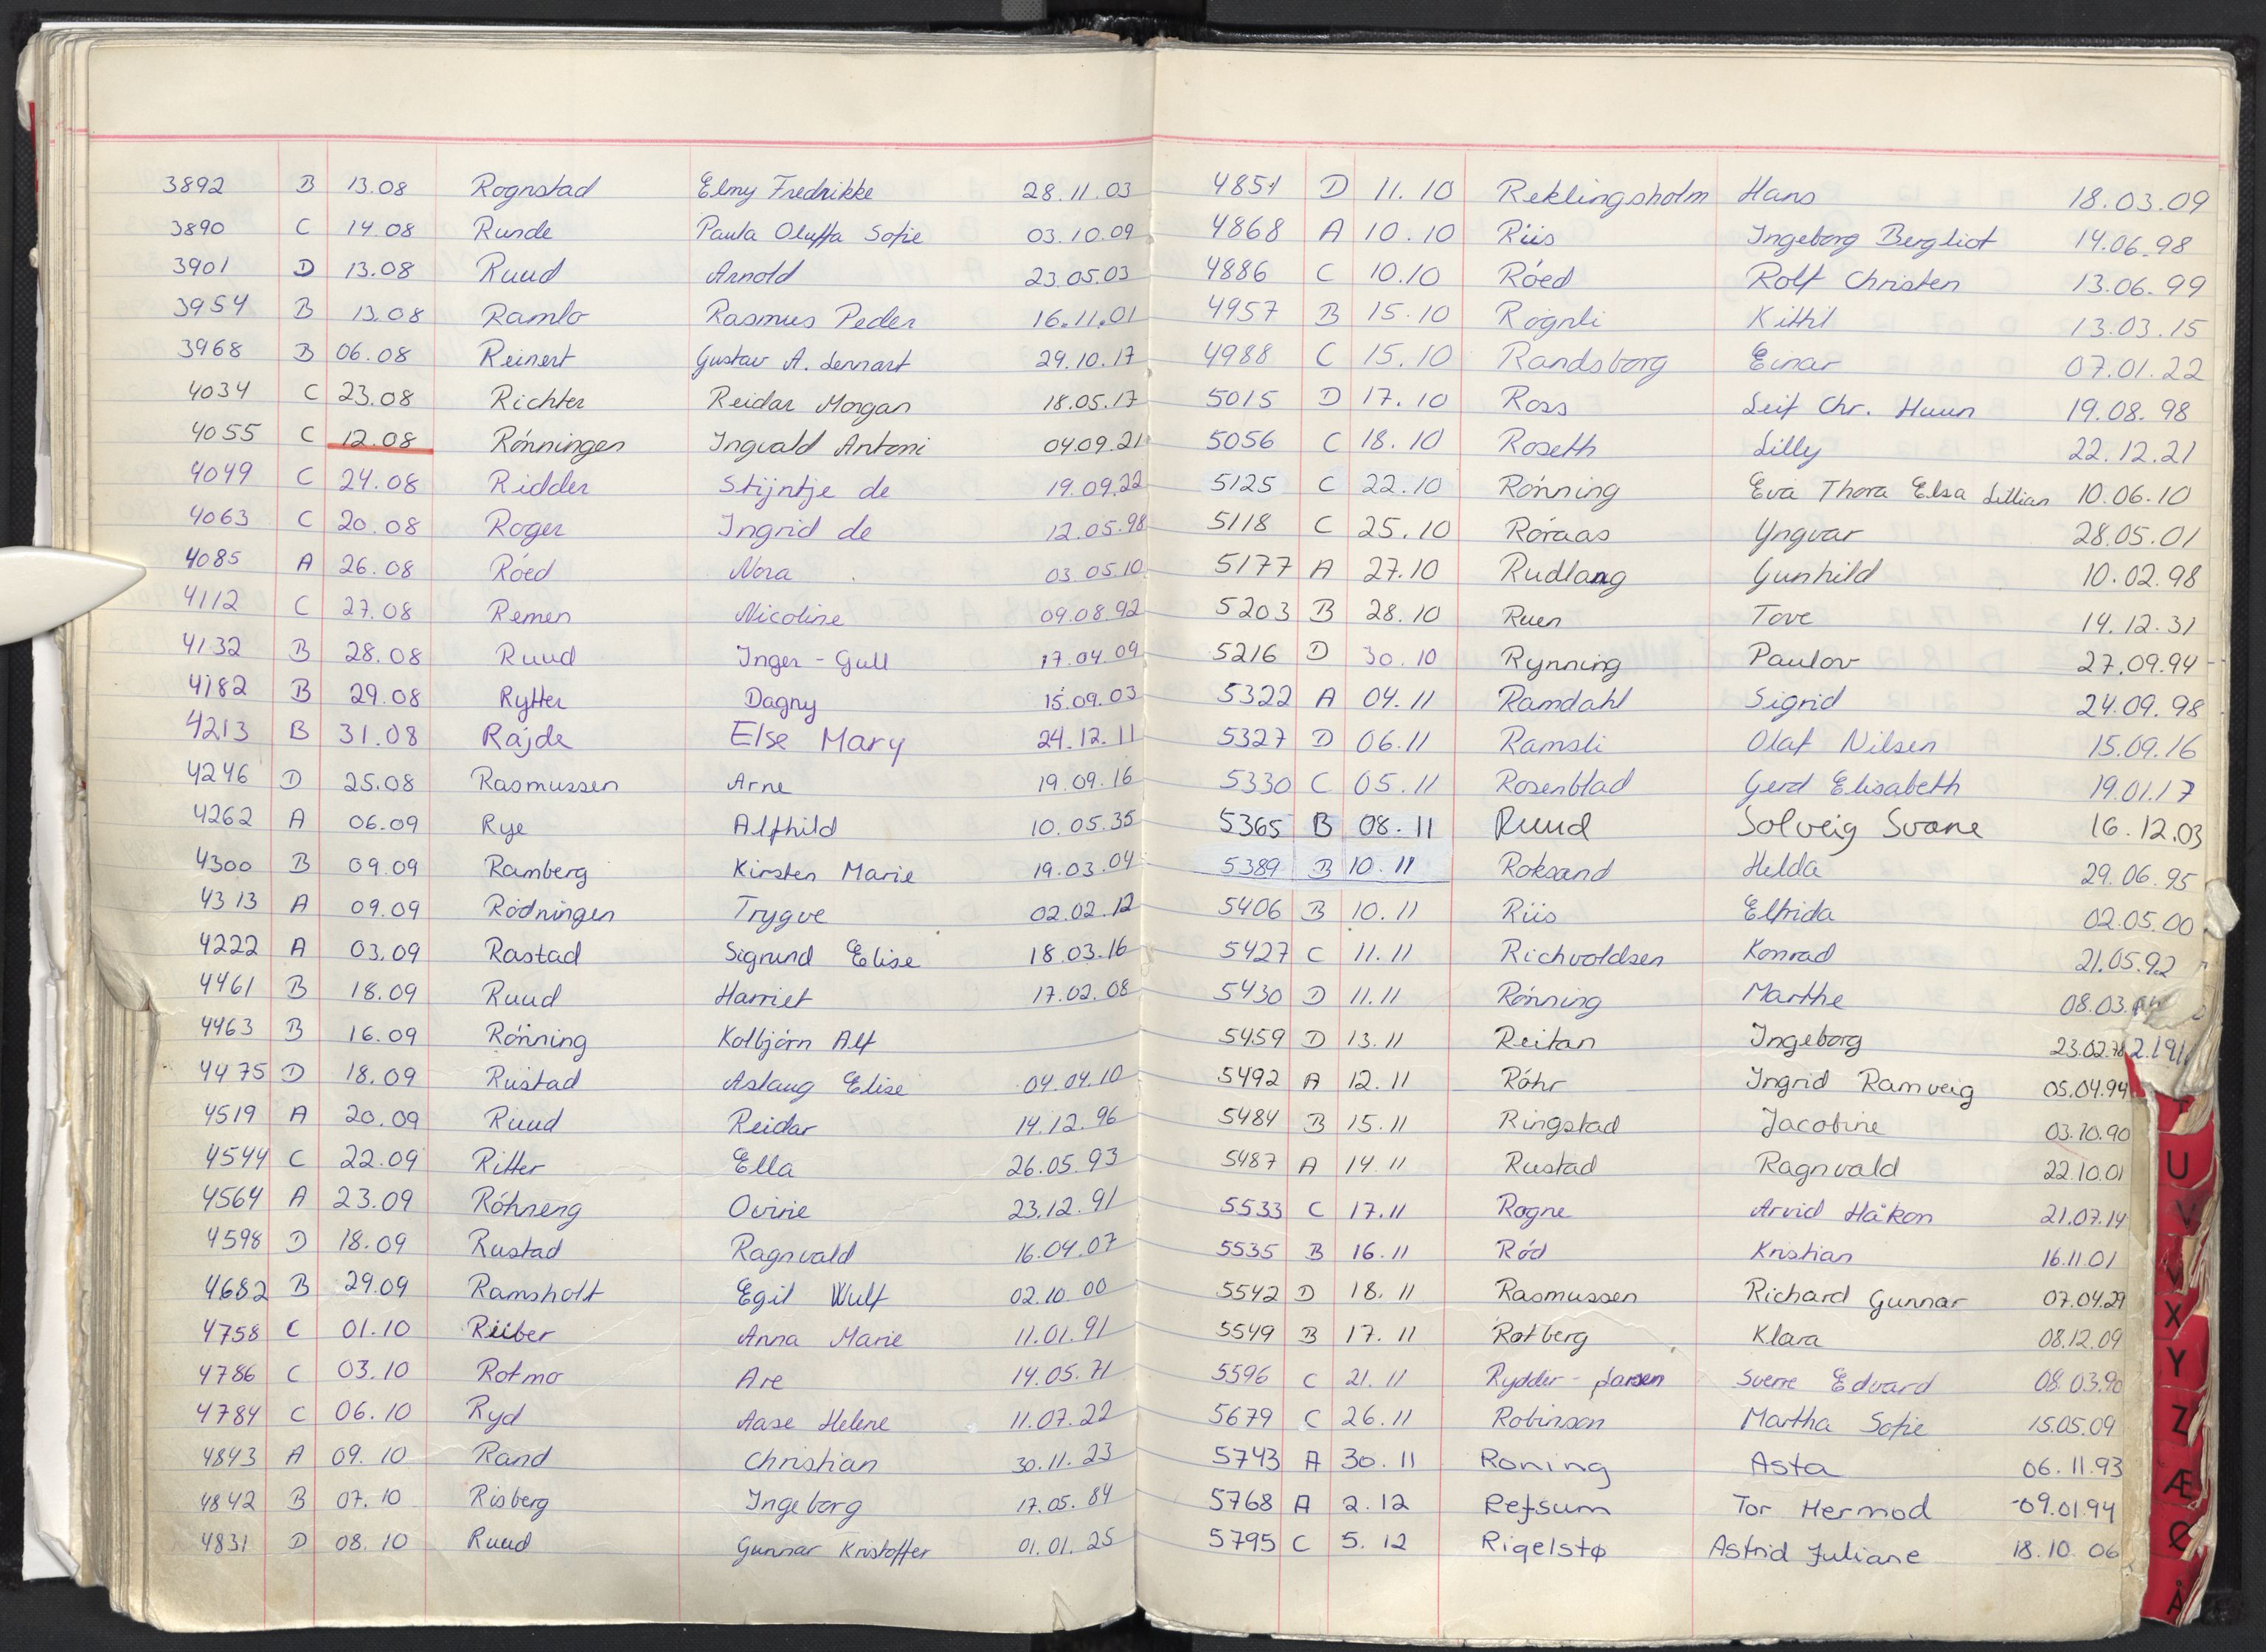 3892 B 13.08 Rognstad Elmy Fredrikke 28.11.03
3890 C 14.08 Runde Paula Oluffa Sofie 03.10.09
3901 D 13.08 Ruud Arnold 23.05.03
3954 B 13.08 Ramlo Rasmus Peder 16.11.01
3968 B 06.08 Reinert Gustav A. Lennart 29.10.17
4034 C 23.08 Richter Reidar Morgan 18.05.17
4055 C 12.08 Rónningen Ingvald Antoni 04.09.21
4049 C 24.08 Ridder Stijntje de 19.09.22
4063 C 20.08 Roger Ingrid de 12.05.98
4085 A 26.08 Róed Nora 03.05.10
4112 C 27.08 Remen Nicoline 09.08.92
4132 B 28.08 Ruud Inger-Gull 17.04.09
4182 B 29.08 Rytter Dagny 15.09.03
4213 B 31.08 Rajde Else Mary 24.12.11
4246 D 25.08 Rasmussen Arne 19.09.16
4262 A 06.09 Rye Alfhild 10.05.35
4300 B 09.09 Ramberg Kirsten Marie 19.03.04
4313 A 09.09 Ródningen Trygve 02.02.12
4222 A 03.09 Rastad Sigrund Elise 18.03.16
4461 B 18.09 Ruud Harriet 17.02.08
4463 B 16.09 Rónning Kolbjórn Alf
4475 D 18.09 Rustad Aslaug Elise 04.04.10
4519 A 20.09 Ruud Reidar 14.12.96
4544 C 22.09 Ritter Ella 26.05.93
4564 A 23.09 Róhneng Ovinie 23.12.91
4598 D 18.09 Rustad Ragnvald 16.04.07
4682 B 29.09 Ramsholt Egil Wulf 02.10.00
4758 C 01.10 Rüber Anna Marie 11.01.91
4786 C 03.10 Rotmo Are 14.05.71
4784 C 06.10 Ryd Aase Helene 11.07.22
4843 A 09.10 Rand Christian 30.11.23
4842 B 07.10 Risberg Ingeborg 17.05.84
4831 D 08.10 Ruud Gunnar Kristoffer 01.01.25
4851 D 11.10 Reklingsholm Hans 18.03.09
4868 A 10.10 Riis Ingeborg Bergliot 14.06.98
4886 C 10.10 Róed Rolf Christen 13.06.99
4957 B 15.10 Rognli Kittil 13.03.15
4988 C 15.10 Randsborg Einar 07.01.22
5015 D 17.10 Ross Leif Chr. Huun 19.08.98
5056 C 18.10 Roseth Lilly 22.12.21
5125 C 22.10 Rónning Eva Thora Elsa Lillian 10.06.10
5118 C 25.10 Róraas Yngvar 28.05.01
5177 A 27.10 Rudlang Gunhild 10.02.98
5203 B 28.10 Ruen Tove 14.12.31
5216 D 30.10 Rynning Paulov 27.09.94
5322 A 04.11 Ramdahl Sigrid 24.09.98
5327 D 06.11 Ramsli Olaf Nilsen 15.09.16
5330 C 05.11 Rosenblad Gerd Elisabeth 19.01.17
5365 B 08.11 Ruud Solveig Svane 16.12.03
5389 B 10.11 Roksand Helda 29.06.95
5406 B 10.11 Riis Elfrida 02.05.00
5427 C 11.11 Richvoldsen Konrad 21.05.92
5430 D 11.11 Rónning Marthe 08.03.
5459 D 13.11 Reitan Ingeborg 23.02.78
5492 A 12.11 Róhr Ingrid Ramveig 05.04.94
5484 B 15.11 Ringstad Jacobine 03.10.90
5487 A 14.11 Rustad Ragnvald 22.10.01
5533 C 17.11 Rogne Arvid Håkon 21.07.14
5535 B 16.11 Ród Kristian 16.11.01
5542 D 18.11 Rasmussen Richard Gunnar 07.04.29
5549 B 17.11 Rotberg Klara 08.12.09
5596 C 21.11 Rydder-Larsen Sverre Edvard 08.03.90
5679 C 26.11 Robinson Martha Sofie 15.05.09
5743 A 30.11 Roning Asta 06.11.93
5768 A 2.12 Refsum Tor Hermod 09.01.94
5795 C 5.12 Rigelstø Astrid Juliane 18.10.06
U
V
X
Y
Z
Æ
Ø
Å